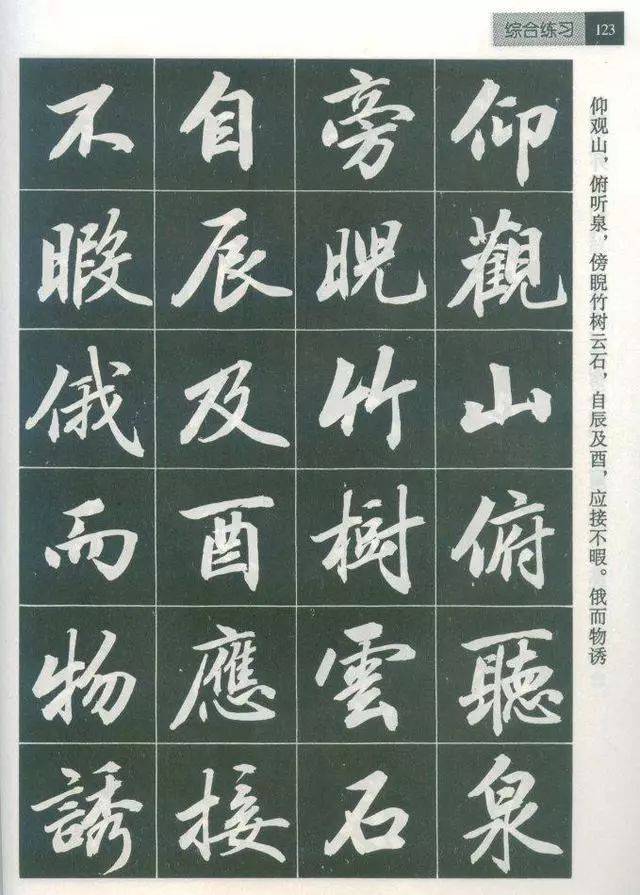 综合练习 123
仰观山，俯听泉，傍睨竹树云石，自辰及酉，应接不暇。俄而物诱
仰觀山俯聽泉
旁睨竹樹雲石
自辰及酉應接
不暇俄而物誘